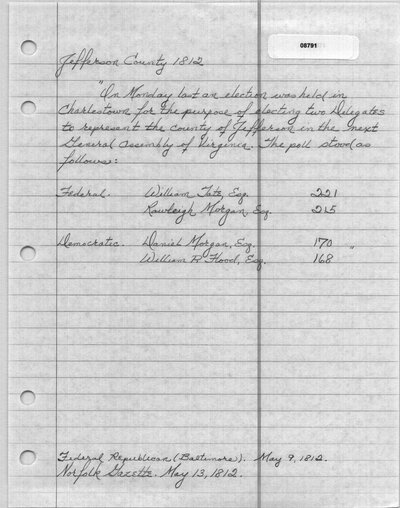 08791
Jefferson County 1812
"On Monday last an election was held in
Charlestown for the purpose of electing two Delegates
to represent the county of Jefferson in the next
General Assembly of Virginia. The poll stood as
follows:
Federal. William Tate, Esq. 221
Rawleigh Morgan, Esq. 215
Democratic. Daniel Morgan, Esq. 170 "
William R Flood, Esq. 168
Federal Republican (Baltimore). May 9, 1812.
Norfolk Gazette. May 13, 1812.